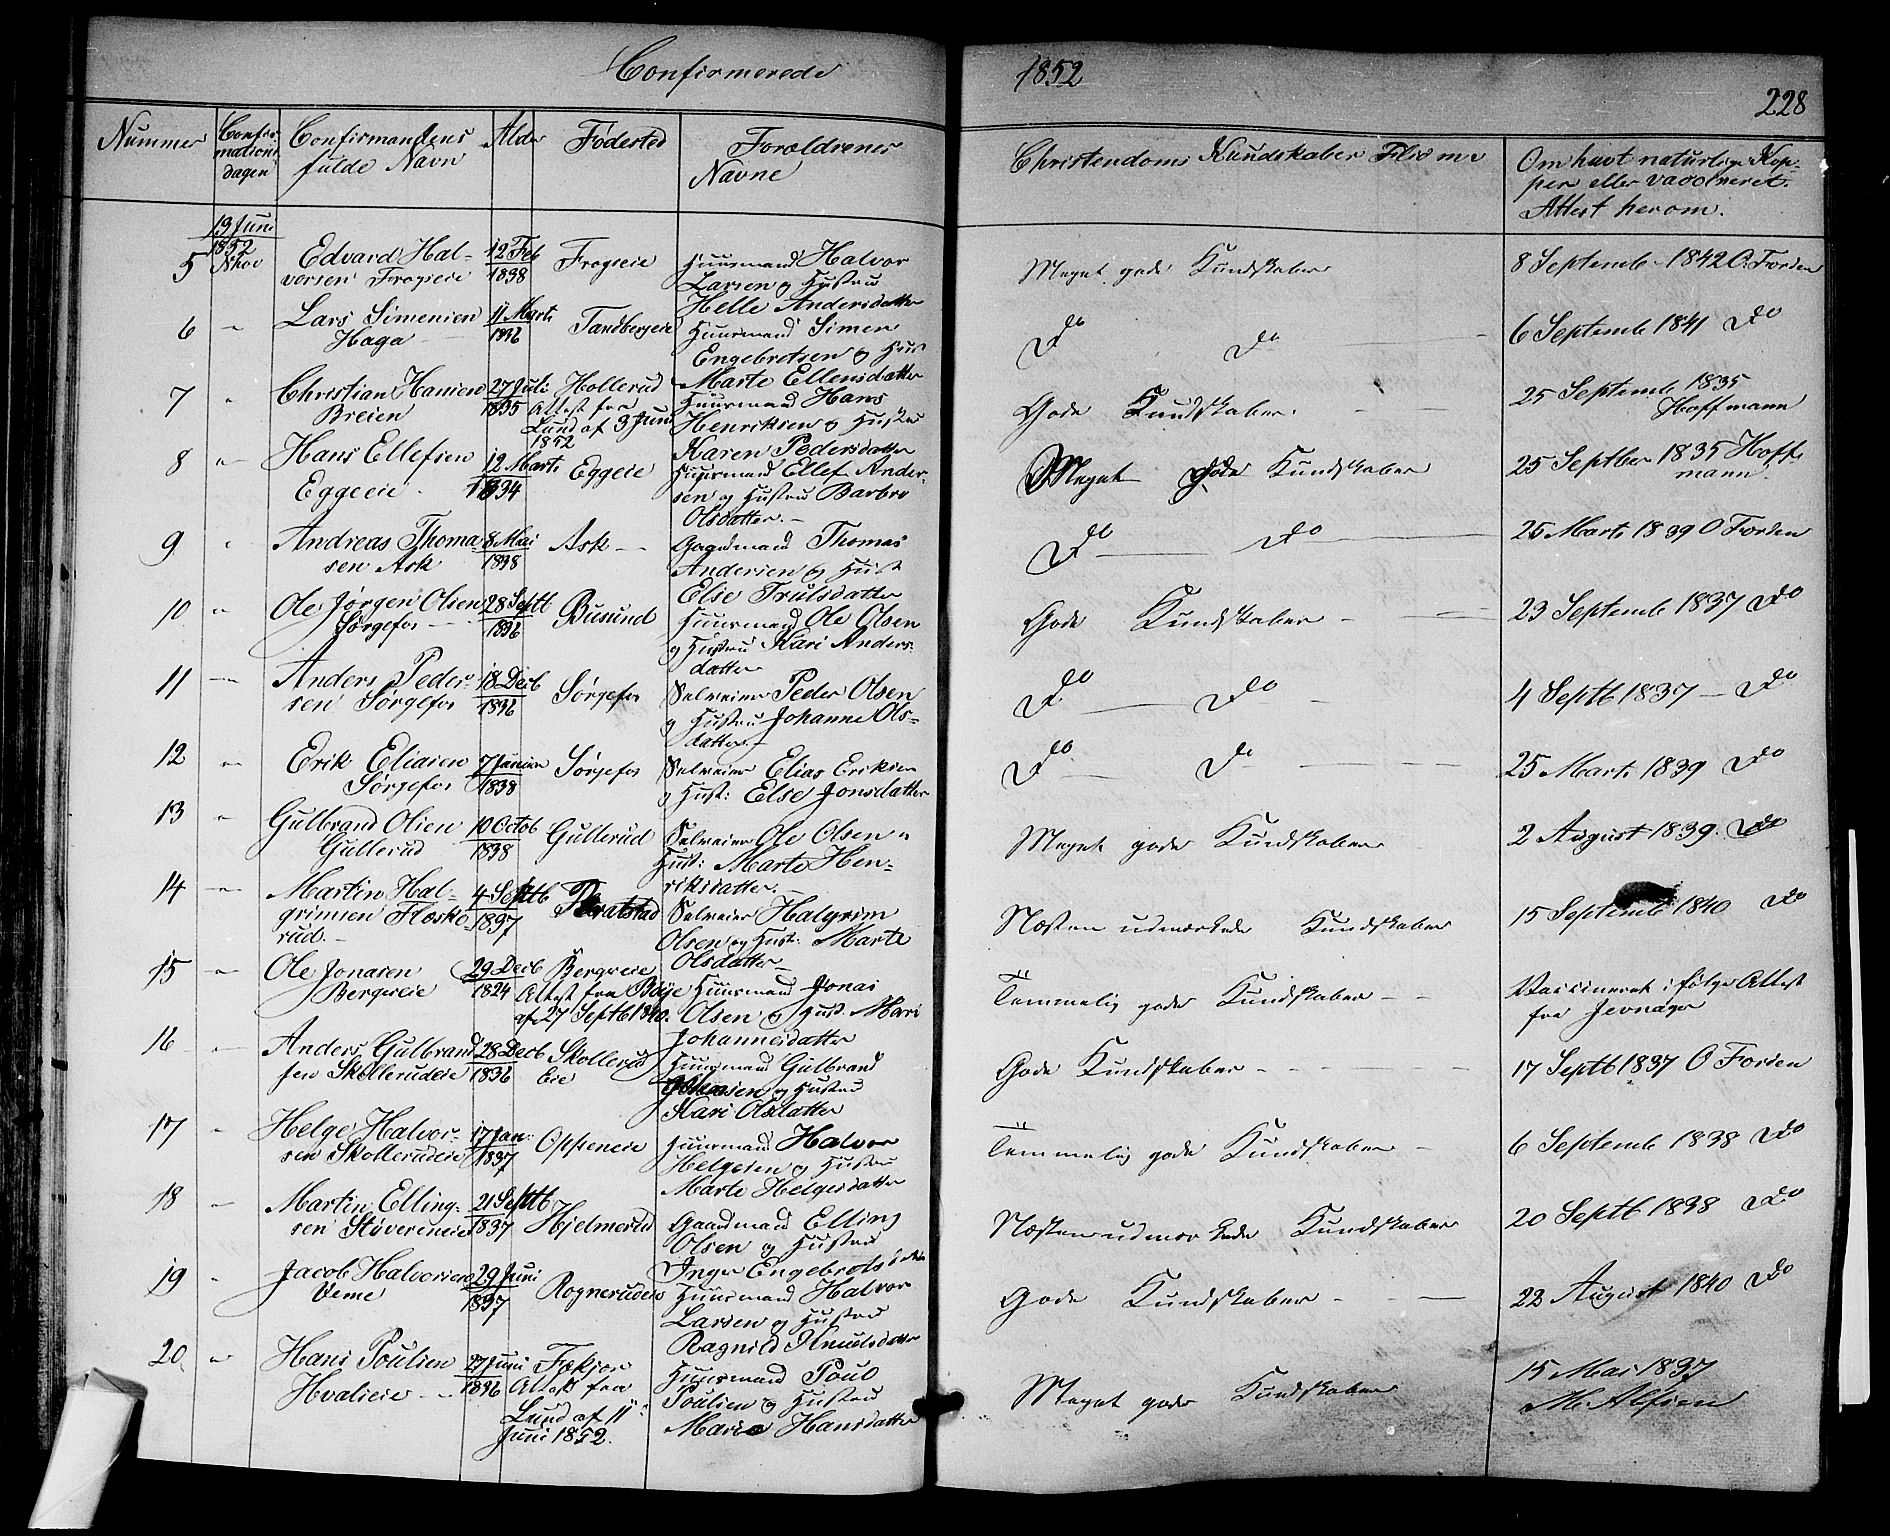 Confirmerede
1852
228
Nummer
Confir-
mations
dagen
Confirmandens
fulde Navn
Alder
Fødested
Forældrenes
Navne
Christendoms Kundskaber Flid m.v
Om havt naturlige Kop-
per eller vaccineret.
Attest herom.
13 Juni
1852
5
Edvard Hal-
vorsen Frogeie
12 Feb
1838
Frogeie
Huusmand Halvor
Larsen og Hustru
Helle Andersdatter
Meget gode Kundskaber
8 Septemb 1842 O. Forden
6 "
Lars Simensen
Haga
11 Marts
1836
Tandbergeie
Huusmand Simen
Engebretsen og Hust
Marte Ellensdatter
Do Do
6 Septemb 1841 Do
7 "
Christian Hansen
Breien
27 Juli
1835
Hollerud
Attest fra
Lund af 3 Juni
1852
Huusmand Hans
Henriksen og Hustru
Karen Pedersdatter
Gode Kundskaber
25 Septemb 1835
Hoffmann
8 "
Hans Ellefsen
Eggeie
12 Marts
1834
Eggeie
Huusmand Ellef Ander-
sen og Hustru Barbro
Olsdatter.
Meget gode Kundskaber
25 Septber 1835 Hoff-
mann
9 "
Andreas Thoma
sen Ask
8 Mai
1838
Ask
Gaardmand Thomas
Andersen og Hust
Else Trulsdatter
Do Do
25 Marts 1839 O Forden
10 "
Ole Jørgen Olsen
Sørgefos
28 Septb
1836
Busund
Huusmand Ole Olsen
og Hustru Kari Anders-
datter
Gode Kundskaber
23 Septemb 1837 Do
11 "
Anders Peder-
sen Sørgefos
18 Decb
1836
Sørgefos
Selveier Peder Olsen
og Hustru Johanne Ols-
datter
Do Do
4 Septb 1837 Do
12 "
Erik Eliasen
Sørgefos
7 Januar
1838
Sørgefos
Selveier Elias Eriksen
og Hust: Else Jonsdatter
Do Do
25 Marts 1839 Do
13 "
Gulbrand Olsen
Gullerud
10 Octob
1838
Gullerud
Selveier Ole Olsen og
Hust: Marte Hen-
riksdatter.
Meget gode Kundskaber
2 August 1839 Do
14 "
Martin Hal-
grimsen Flaske-
rud.
4 Septb
1837
Selveier Halgrim
Olsen og Hust: Marte
Olsdatter
Næsten udmærkede Kundskaber
15 Septemb 1840 Do
15 "
Ole Jonasen
Bergseie
29 Decb
1824
Bergseie
Attest fra
af 27 Septb 1840.
Huusmand Jonas
Olsen og Hust. Mari
Johannesdatter
Temmelig gode Kundskaber
Vaccineret ifølge Attest
fra Jevnager
16 "
Anders Gulbrand
sen Skollerudeie
28 Decb
1836
Skollerud
eie
Huusmand Gulbrand
og Hustru
Kari Olsdatter
Gode Kundskaber
17 Septb 1837 O Forden
17 "
Helge Halvor-
sen Skollerudeie
17 Jan:
1837
Oppeneie
Huusmand Halvor
Helgesen og Hustru
Marte Helgesdatter
Temmelig gode Kundskaber
6 Septemb 1838 Do
18 "
Martin Elling-
sen Støvereneie
21 Septb
1837
Hjelmerud
Gaardmand Elling
Olsen og Hustru
Inger Engebretsdatter
Næsten udmærkede Kundskaber
20 Septb 1838 Do
19 "
Jacob Halvorsen
Veme
29 Juni
1837
Rognerudeie
Huusmand Halvor
Larsen og Hustru
Ragnild Knudsdatter
Gode Kundskaber
22 August 1840 Do
20 "
Hans Poulsen
Hvalseie
27 Juni
1836
Fækjor
Attest fra
Lund af 11
Juni 1852.
Huusmand Poul
Poulsen og Hustru
Marie Hansdatter
Meget gode Kundskaber
15 Mai 1837
M. Alfsen